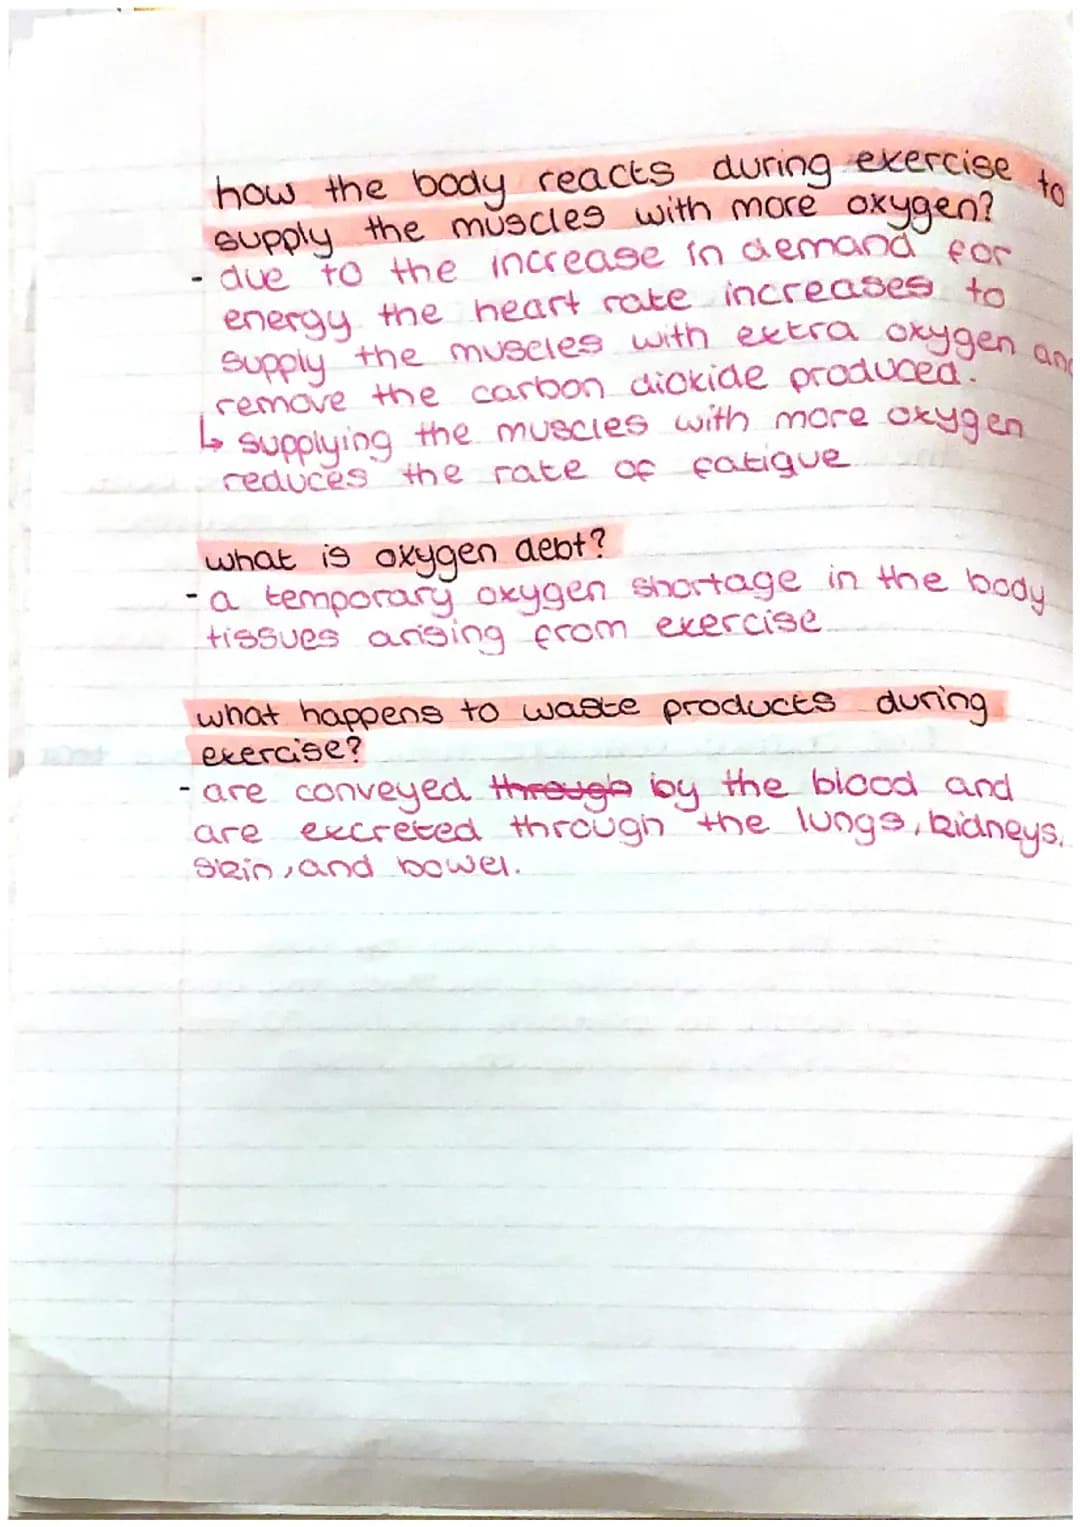 how the body reacts during exercise to
supply the muscles with more oxygen?
- due to the increase in demand for
energy the heart rate increases to
supply the muscles with extra oxygen and
remove the carbon dioxide produced.
↳ supplying the muscles with more oxygen
reduces the rate of fatigue
what is oxygen debt?
- a temporary oxygen shortage in the body
tissues arising from exercise
what happens to waste products during
exercise?
- are conveyed through by the blood and
are excreted through the lungs, kidneys,
skin, and bowel.